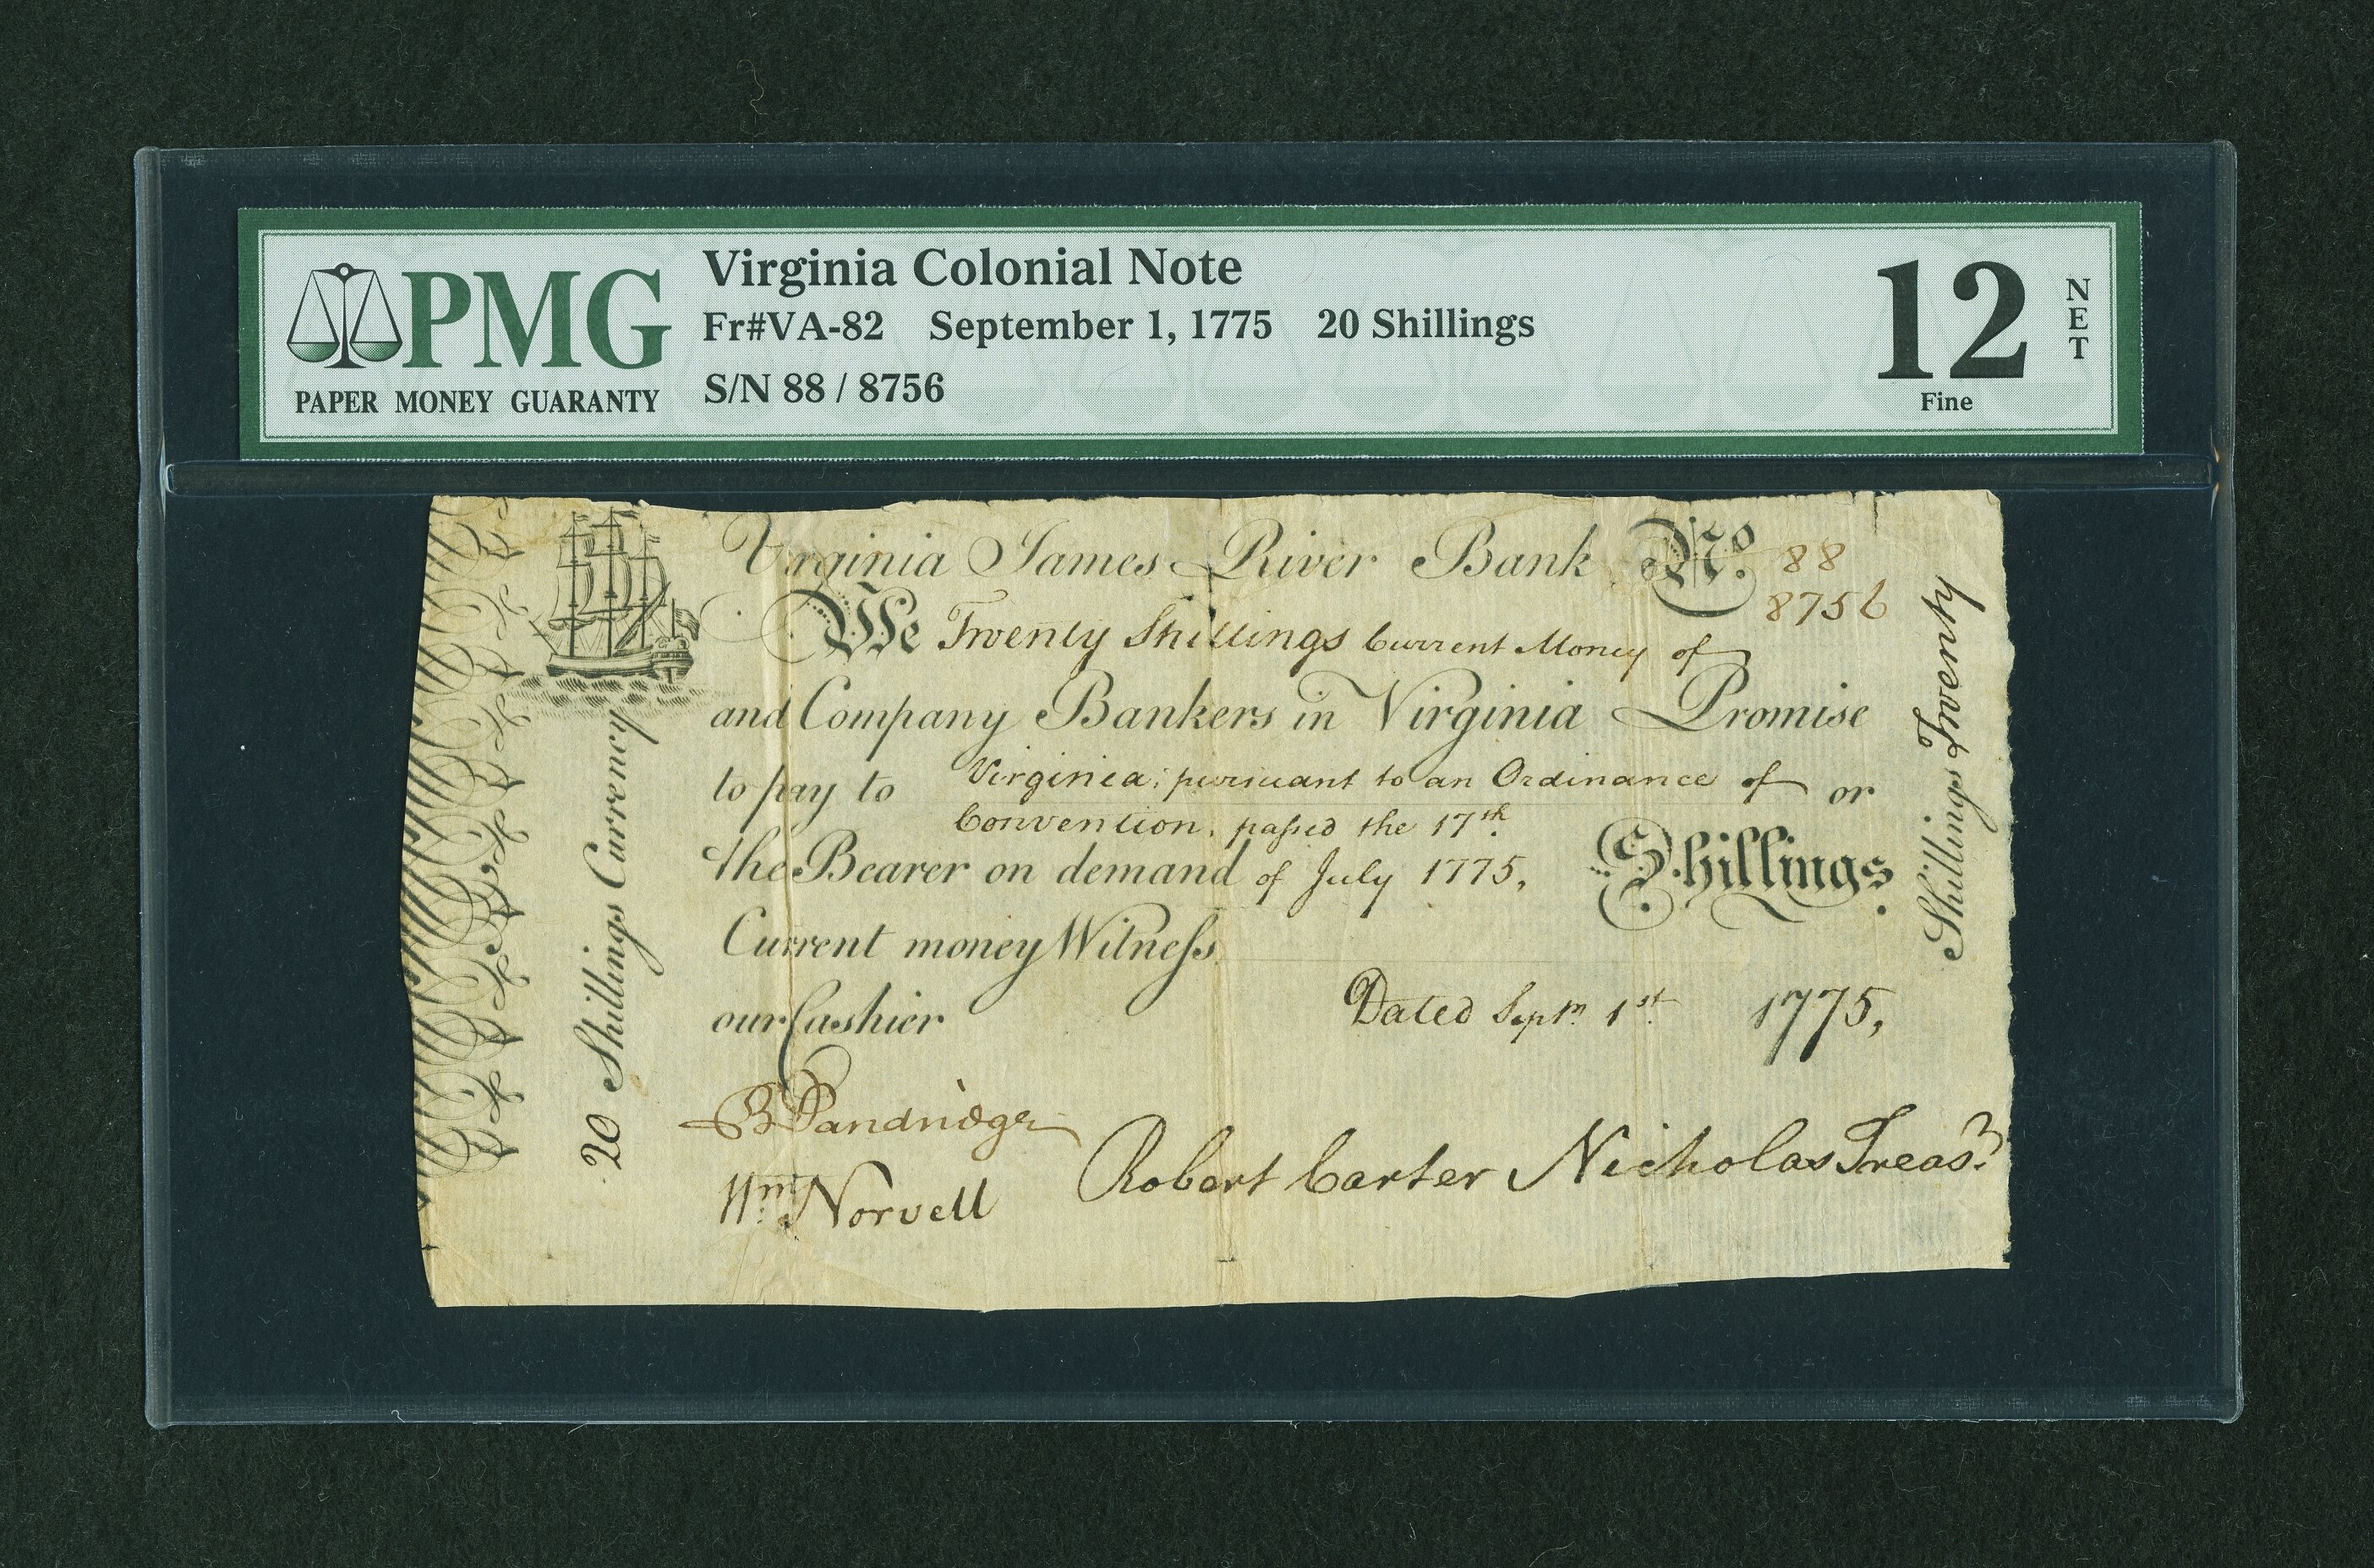 PMG
PAPER MONEY GUARANTY
Virginia Colonial Note
Fr#VA-82 September 1, 1775 20 Shillings
S/N 88 / 8756
12
NET
Fine
Virginia James River Bank No. 88
8756
We Twenty Shillings Current Money of
and Company Bankers in Virginia Promise
to pay to Virginia; pursuant to an Ordinance of or
Convention, passed the 17th.
the Bearer on demand of July 1775, Shillings
Current money Witness
our Cashier
Dated Septm. 1st. 1775,
B Dandridge
Wm. Norvell
Robert Carter Nicholas Treasr.
20 Shillings Currency
Shillings Twenty